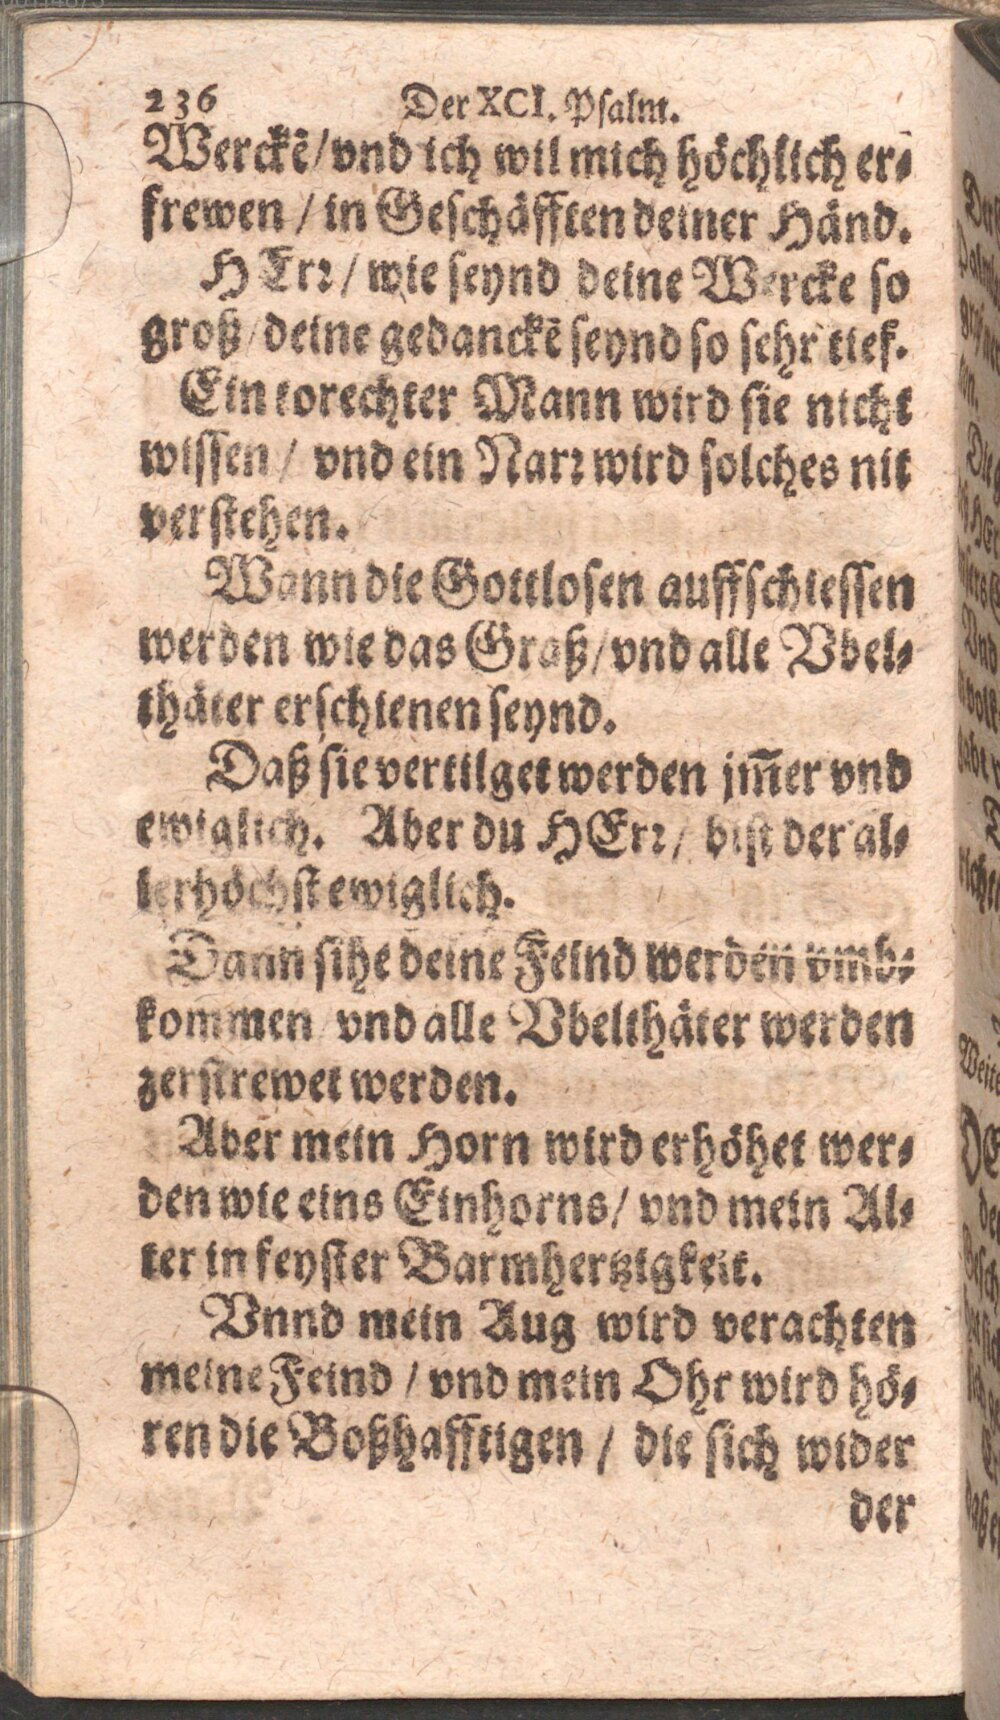 236 Der XCI. Psalm.
Werckē/ vnd ich wil mich höchlich er-
frewen / in Geschäfften deiner Händ.
HErꝛ / wie seynd deine Wercke so
groß / deine gedanckē seynd so sehr tief.
Ein torechter Mann wird sie nicht
wissen / vnd ein Narꝛ wird solches nit
verstehen.
Wann die Gottlosen auffschiessen
werden wie das Graß / vnd alle Vbel-
thäter erschienen seynd.
Daß sie vertilget werden jm̄er vnd
ewiglich. Aber du HErꝛ / bist der al-
lerhöchst ewiglich.
Dann sihe deine Feind werden vmb-
kommen vnd alle Vbelthäter werden
zerstrewet werden.
Aber mein Horn wird erhöhet wer-
den wie eins Einhorns / vnd mein Al-
ter in feyster Barmhertzigkeit.
Vnnd mein Aug wird verachten
meine Feind / vnd mein Ohr wird hö-
ren die Boßhafftigen / die sich wider
der